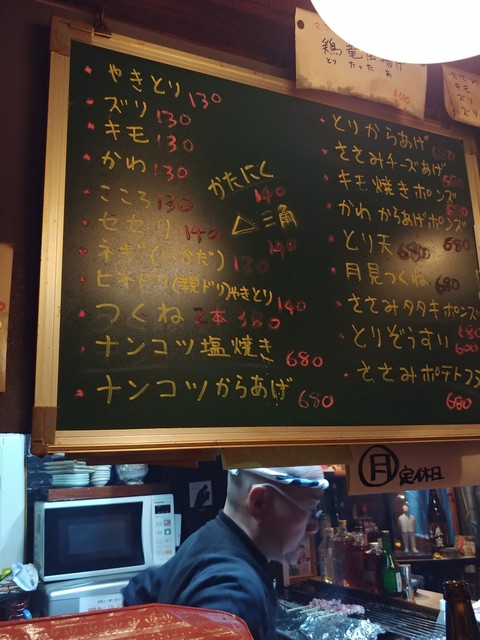 やきとり 130
ズリ 130
キモ 130
かわ 130
こころ 130
セセリ 140
ネギ(いかだ) 130
ヒネドリ(親ドリ)やきとり 140
つくね 2本
ナンコツ塩焼き 680
ナンコツからあげ 680
かたにく 140
△三角 140
とりからあげ
ささみチーズあげ
キモ焼きポンズ
かわからあげポンズ
とり天 680 680
月見つくね 680
ささみタタキポンズ
とりぞうすい 680
600
ささみポテトフ
680
鶏竜田揚げ
とり たつた あ
ささみ
キモ
ズリ
月 定休日